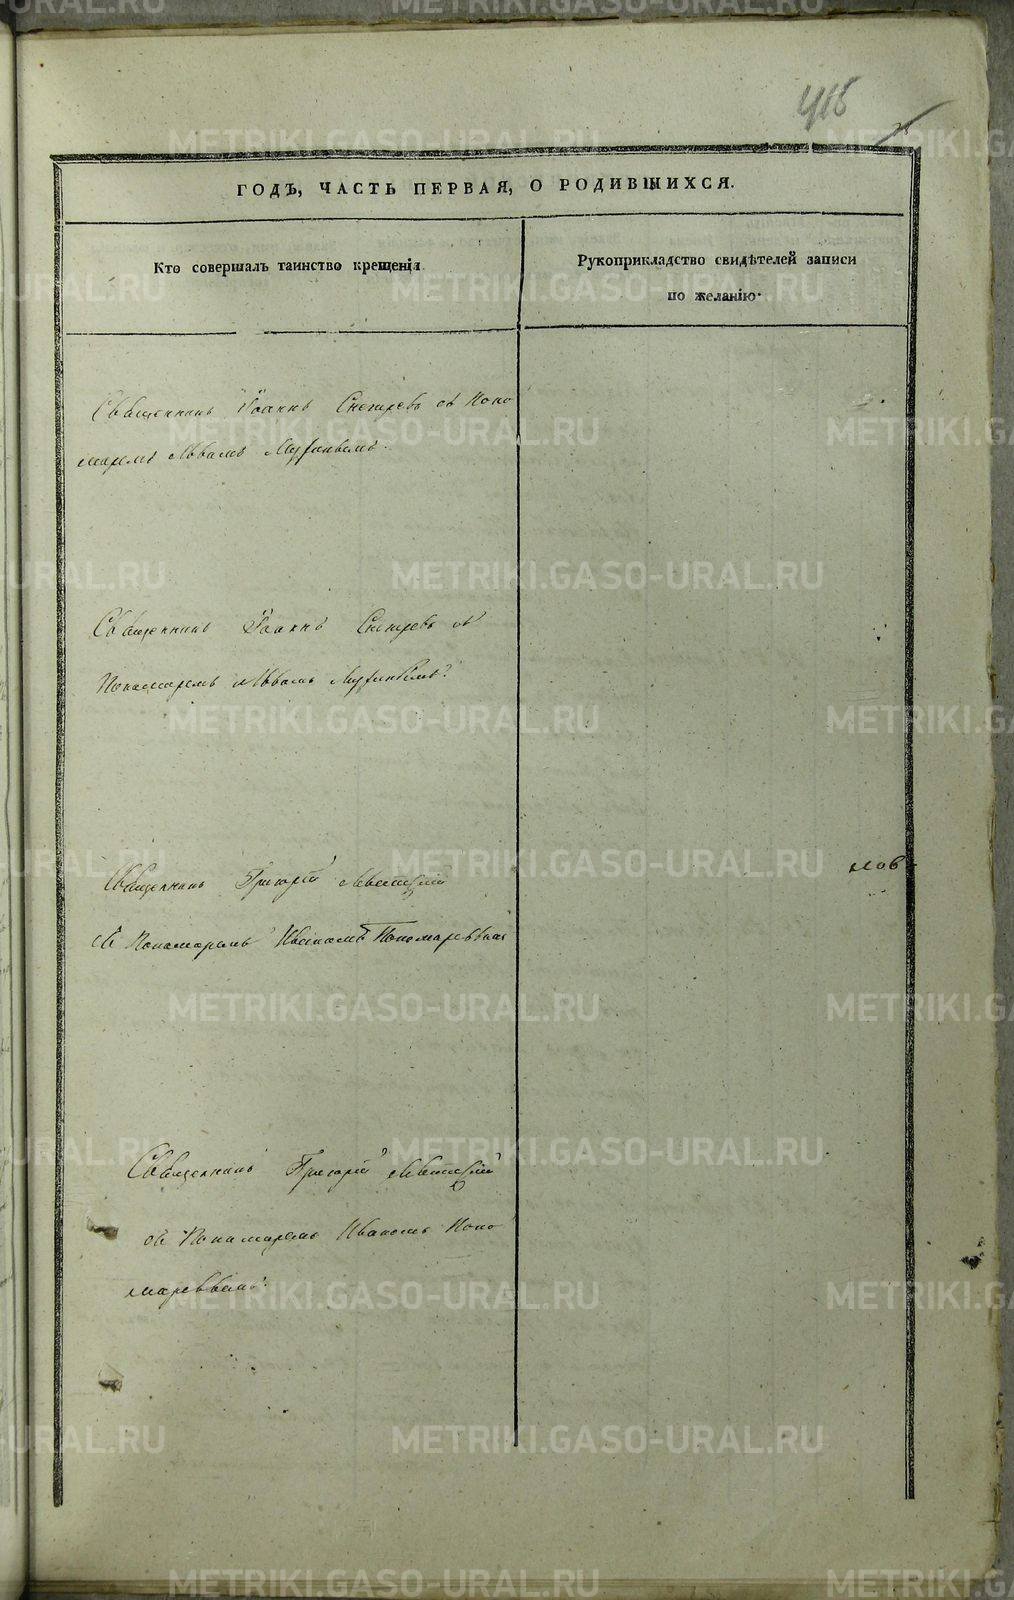 418
ГОДЪ, ЧАСТЬ ПЕРВАЯ, О РОДИВШИХСЯ.
Кто совершалъ таинство крещенія
Рукоприкладство свидѣтелей записи
по желанію.
Священникъ Іоаннъ Снегирев съ Поно
маремъ Львомъ
Священникъ Іоаннъ Снегирев съ
Пономаремъ Львомъ
Священникъ Григорій Левитскій
съ Пономаремъ Иваномъ Пономаревымъ
Священникъ Григорій Левитскій
съ Пономаремъ Иваномъ Поно
маревымъ.
лов
METRIKI.GASO-URAL.RU